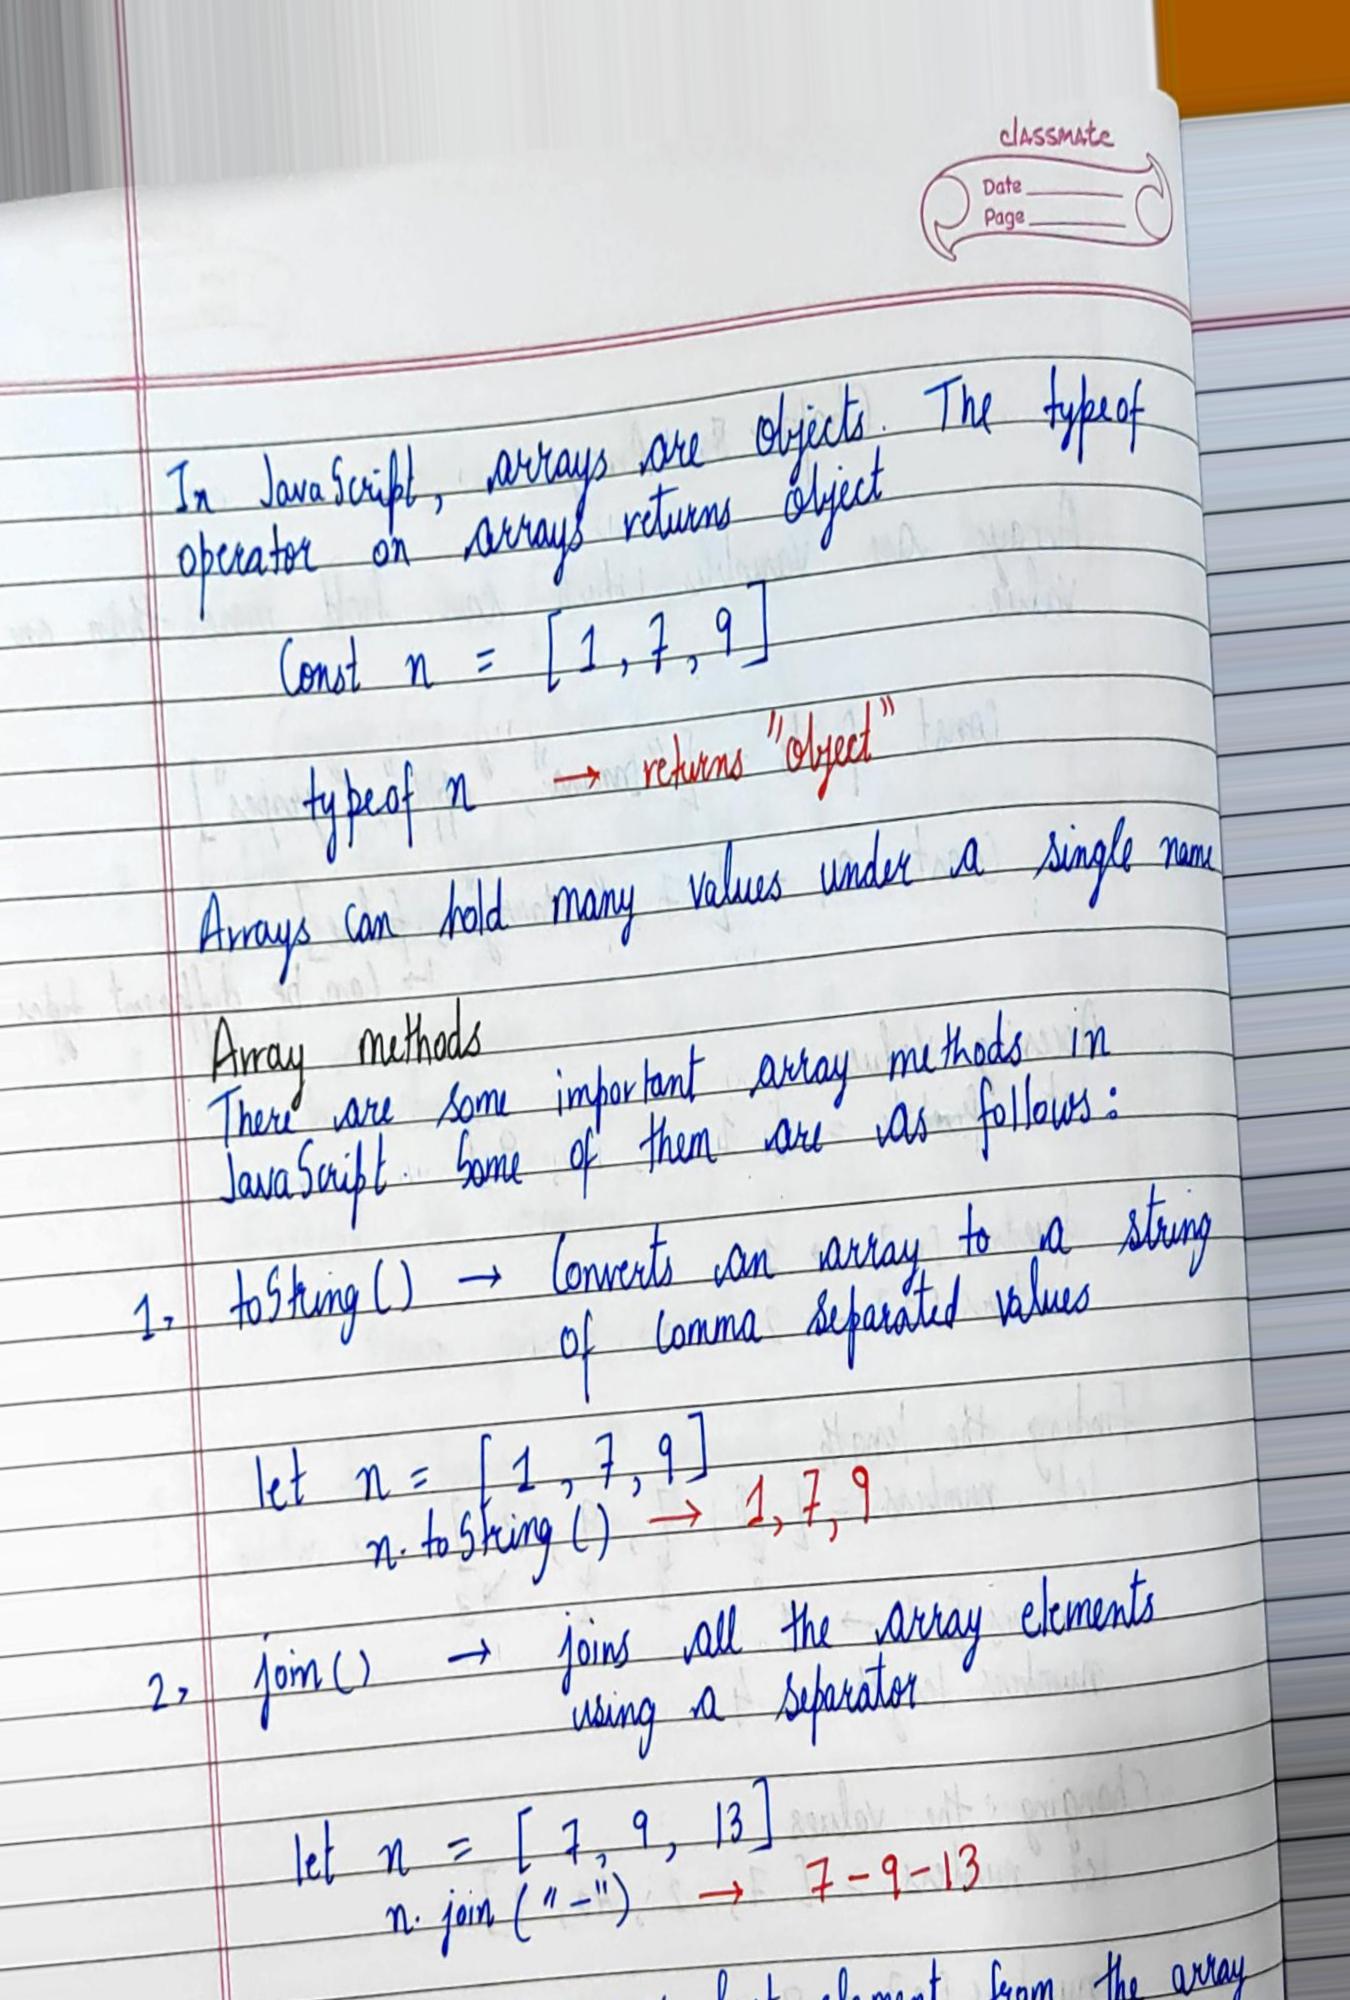 classmate
Date
Page
In JavaScript, arrays are objects. The typeof
operator on arrays returns object
Const n = [1, 7, 9]
typeof n → returns "object"
Arrays can hold many values under a single name
Array methods
There are some important array methods in
JavaScript. Some of them are as follows:
1, toString() → Converts an array to a string
of comma separated values
let n = [1, 7, 9]
n. toString() → 1, 7, 9
2, join() → joins all the array elements
using a separator
let n = [7, 9, 13]
n. join ("-") → 7-9-13
element from the array